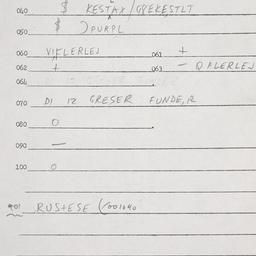 040 $ KESTAX/GREKESTLT
050 $ )PURPL
060 VIFLERLEJ 061 +
062 + 063 - QALERLEJ
064
070 DI IZ GRESER FUNDE, R
080 O
090 —
100 O
901 RUSTESE (/001040